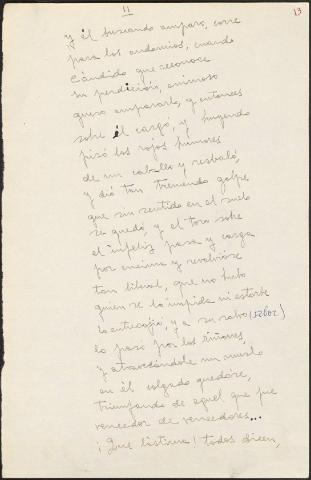 11
13
y él buscando amparo, corre
para los andamios, cuando
Cándido que reconoce
su perdición, animoso
quiso ampararlo, y entonces
sobre él cargó, y huyendo
pisó los rojos humores
de un caballo y resbaló,
y dió tan tremendo golpe
que sin sentido en el suelo
se quedó, y el toro sobre
el infeliz pasa y carga
por encima y revolvióse
tan liberal, que no hubo
quien se lo impida ni estorbe
lo entrecogió, y a su sabo (sabor)
lo pasó por los riñones,
y atravesándole un muslo
en él colgado quedóse,
triunfando de aquel que fue
vencedor de vencedores...
¡Qué lástima! todos dicen,